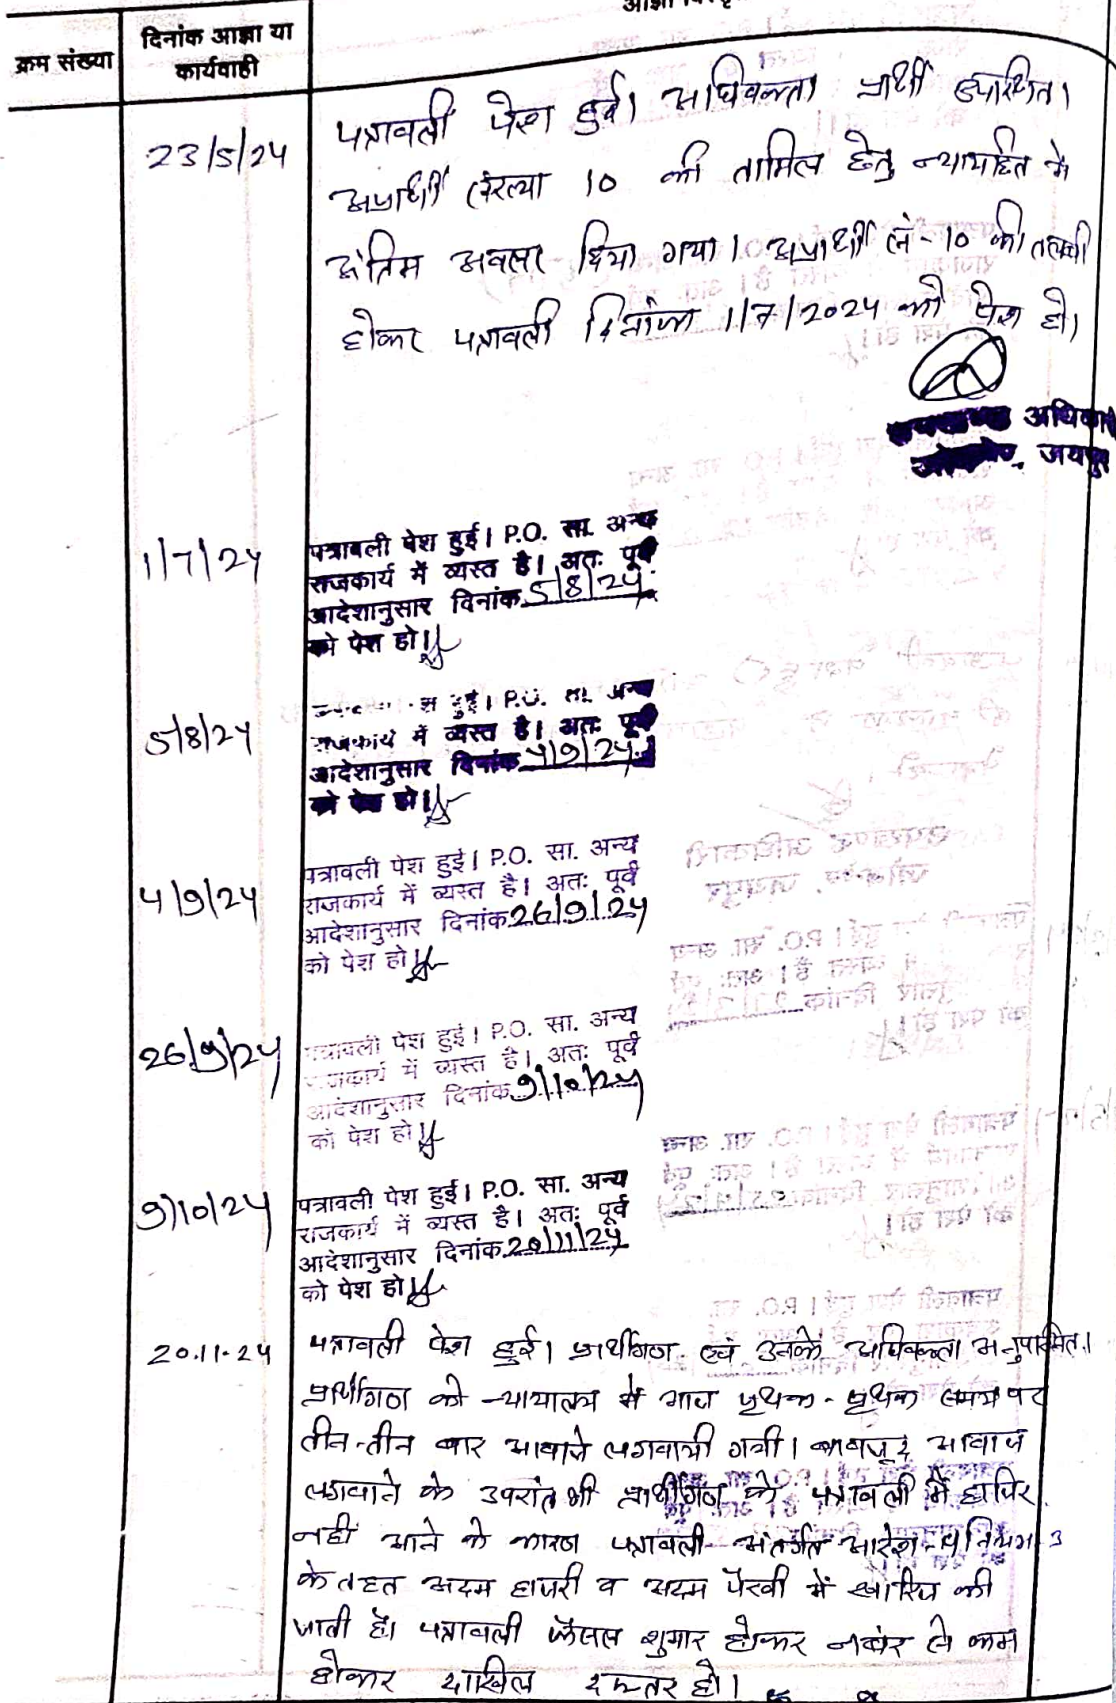 दिनांक आज्ञा या
क्रम संख्या
कार्यवाही
23/5/24
पत्रावली पेश हुई। अधिवक्ता प्रार्थी उपस्थित।
अप्रार्थी संख्या 10 की तामिल हेतु न्यायहित में
अंतिम अवसर दिया गया। अप्रार्थी सं-10 की तलबी
होकर पत्रावली दिनांक 1/7/2024 को पेश हो।
जयपुर
1/7/24
पत्रावली पेश हुई। P.O. सा. अन्य
राजकार्य में व्यस्त है। अतः पूर्व
आदेशानुसार दिनांक 5/8/24
को पेश हो।
5/8/24
हुई। P.O. सा. अन्य
राजकार्य में व्यस्त है। अतः पूर्व
आदेशानुसार दिनांक 4/9/24
को पेश हो।
4/9/24
पत्रावली पेश हुई। P.O. सा. अन्य
राजकार्य में व्यस्त है। अतः पूर्व
आदेशानुसार दिनांक 26/9/24
को पेश हो।
26/9/24
पत्रावली पेश हुई। P.O. सा. अन्य
राजकार्य में व्यस्त है। अतः पूर्व
आदेशानुसार दिनांक 9/10/24
को पेश हो।
9/10/24
पत्रावली पेश हुई। P.O. सा. अन्य
राजकार्य में व्यस्त है। अतः पूर्व
आदेशानुसार दिनांक 20/11/24
को पेश हो।
20.11.24
पत्रावली पेश हुई। प्रार्थीगण एवं उनके अधिवक्ता अनुपस्थित।
प्रार्थीगण को न्यायालय में आज पृथक-पृथक समय पर
तीन-तीन बार आवाजे लगवायी गयी। बावजूद आवाज
लगवाने के उपरांत भी प्रार्थीगण के पत्रावली में हाजिर
नहीं आने के कारण पत्रावली अंतर्गत आदेश-9 नियम-3
के तहत अदम हाजरी व अदम पैरवी में खारिज की
जाती है। पत्रावली फैसल शुमार होकर नम्बर से कम
होकर दाखिल दफ्तर हो।